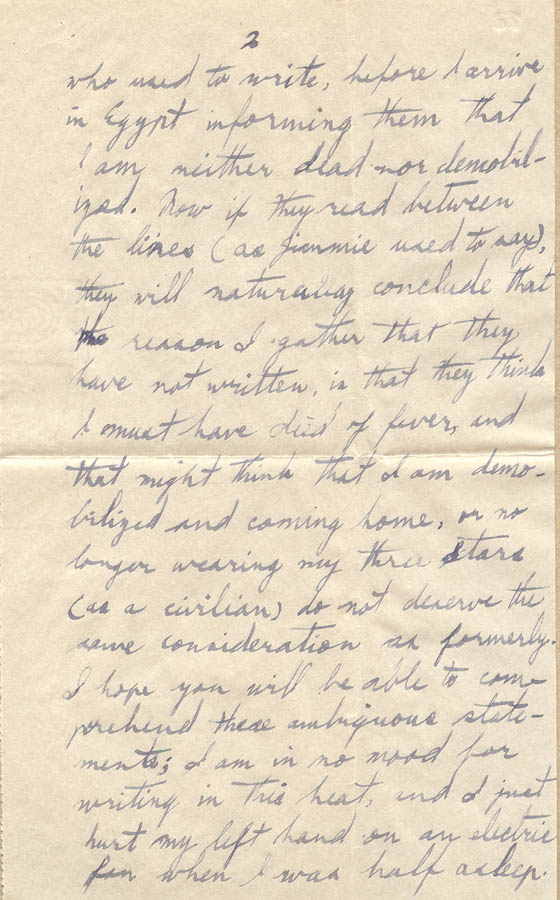 2
who used to write, before I arrive
in Egypt informing them that
I am neither dead nor demobil-
ized. Now if they read between
the lines (as Jimmie used to say),
they will naturally conclude that
the reason I gather that they
have not written, is that they think
I must have died of fever, and
that might think that I am demo-
bilized and coming home, or no
longer wearing my three stars
(as a civilian) do not deserve the
same consideration as formerly.
I hope you will be able to com-
prehend these ambiguous state-
ments; I am in no mood for
writing in this heat, and I just
hurt my left hand on an electric
fan when I was half asleep.